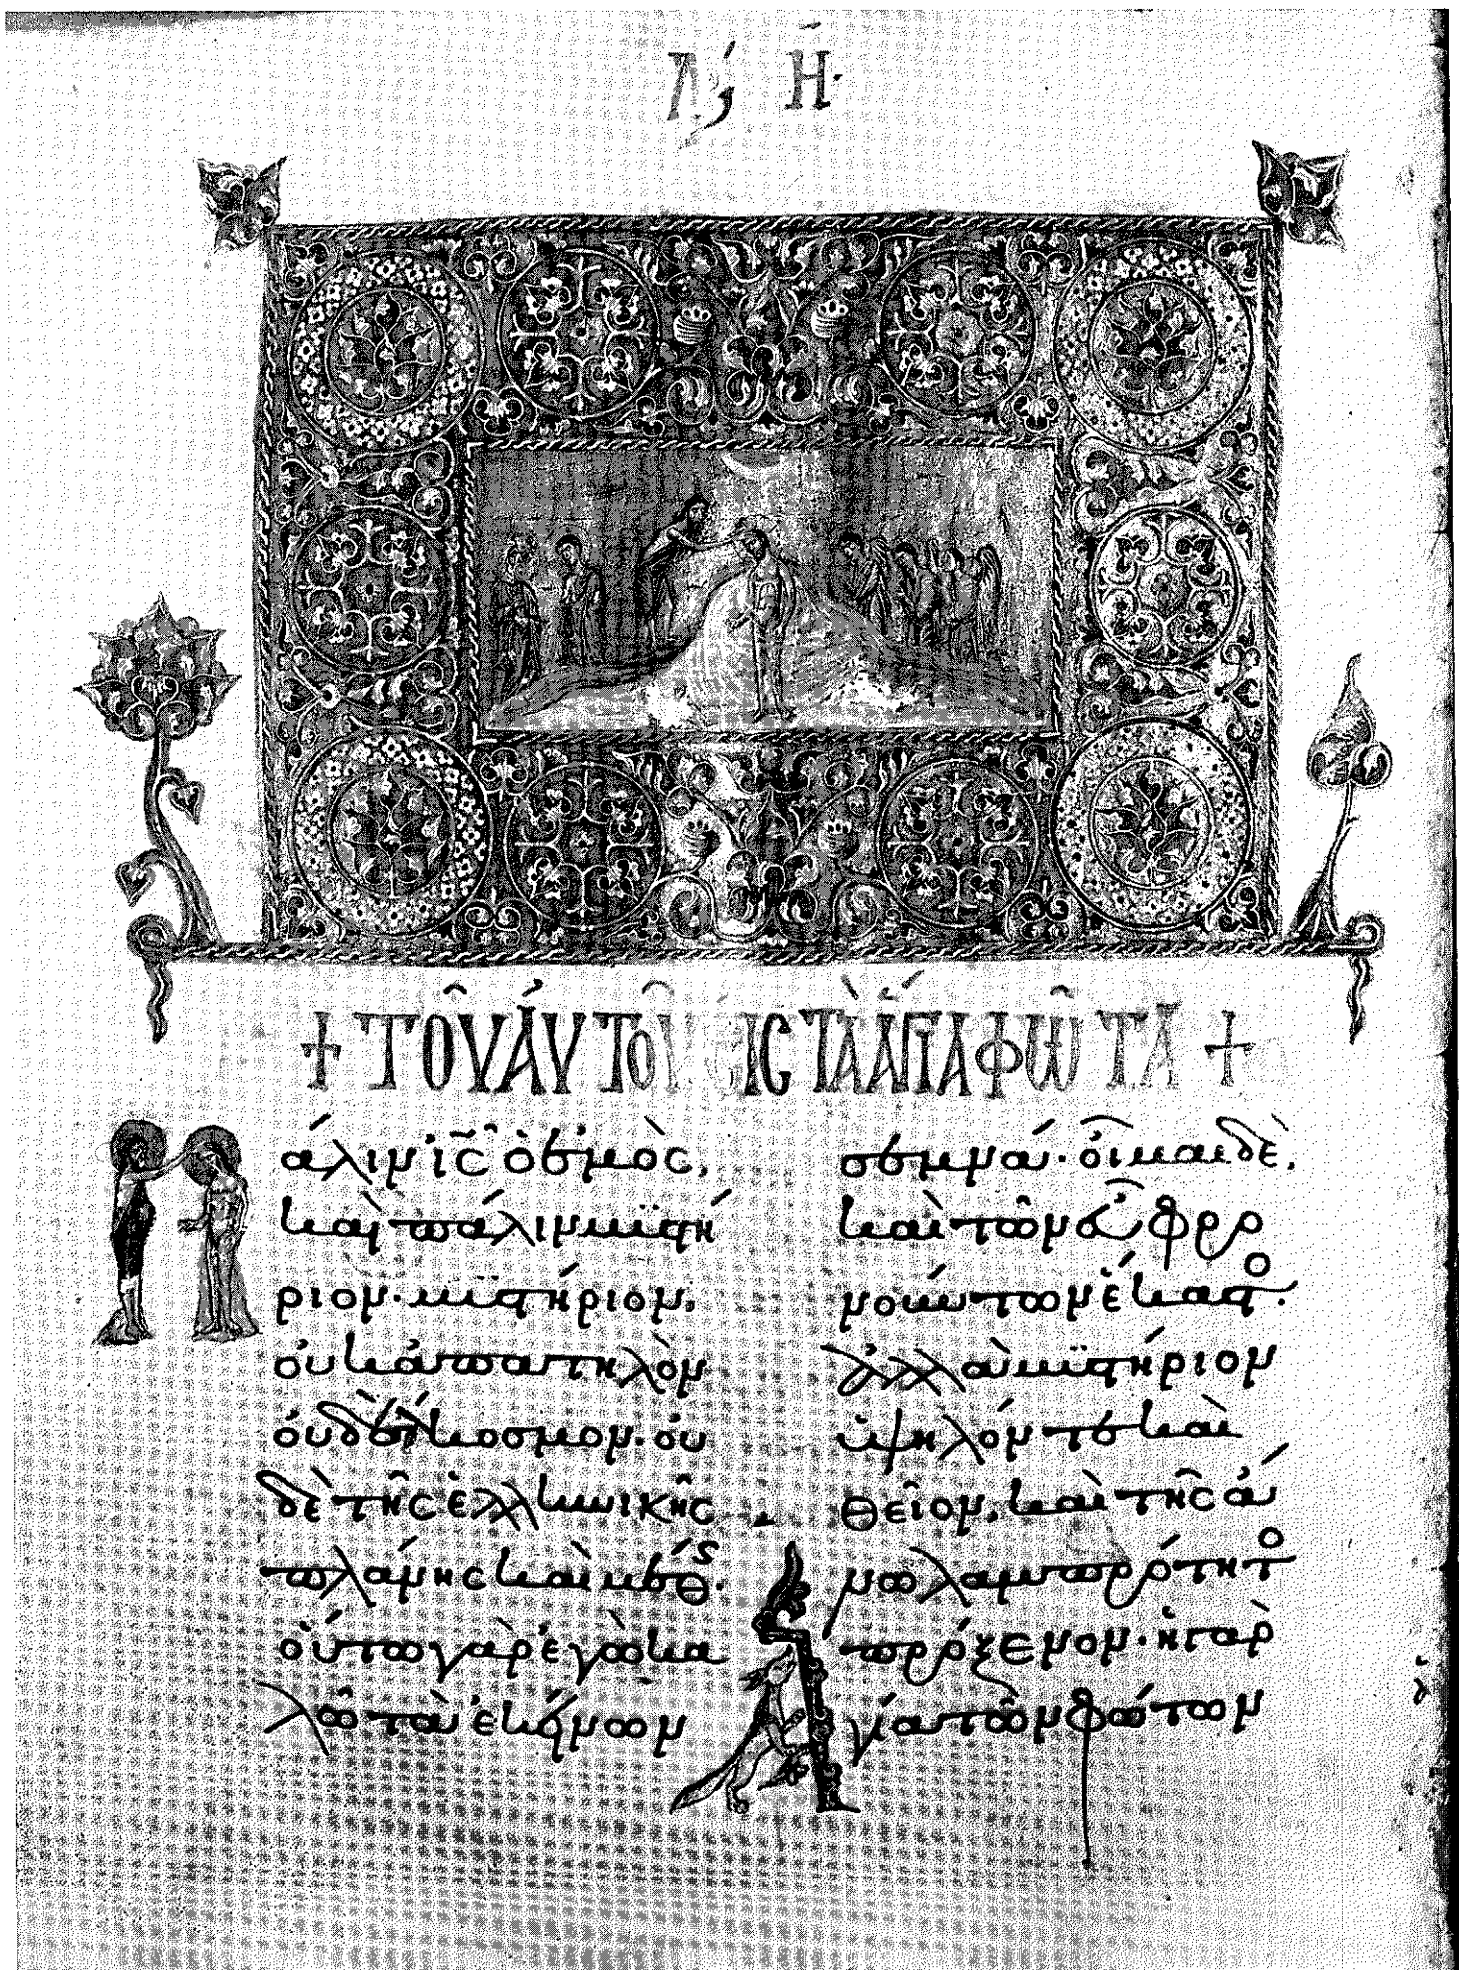 Λό Η·
+ ΤΟΥ ἈΥΤΟΥ ΕΙΣ ΤᾺ ἍΓΙΑ ΦΩΤΑ +
Πάλιν ις ὁ ἐμὸς,
καὶ πάλιν μυστή
ριον· μυστήριον,
οὐκ ἀπατηλὸν
οὐδὲ ἄκοσμον· οὐ
δὲ τῆς ἑλληνικῆς
πλάνης καὶ μέθης·
οὕτω γὰρ ἐγὼ κα
λῶ τὰ ἐκείνων
σεμνά· οἶμαι δὲ,
καὶ τῶν εὖ φρο
νούντων ἕκαστος·
ἀλλὰ μυστήριον
ὑψηλόν τε καὶ
θεῖον, καὶ τῆς ἄ
νω λαμπρότητος
πρόξενον· ἡ γὰρ
Ἁγία τῶν φώτων